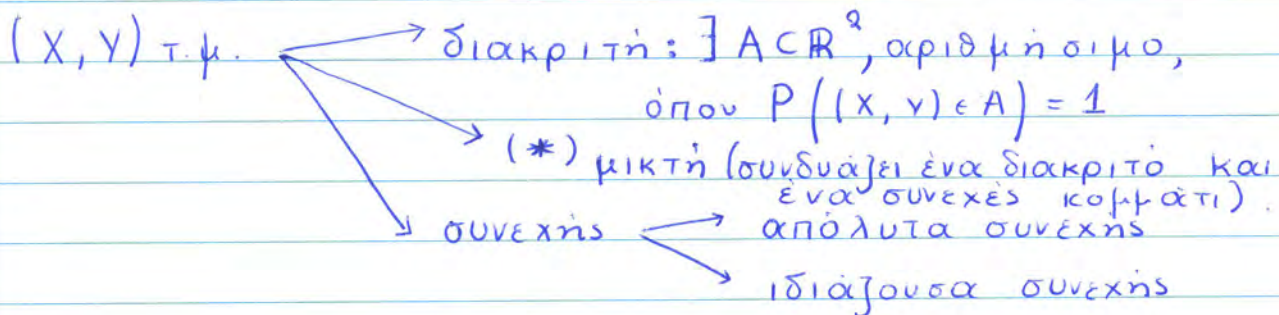 (X, Y) τ.μ. διακριτή: ∃ A⊂ℝ², αριθμήσιμο,
όπου P((X, Y) ∈ A) = 1
(*) μικτή (συνδυάζει ένα διακριτό και
ένα συνεχές κομμάτι).
συνεχής απόλυτα συνεχής
ιδιάζουσα συνεχής